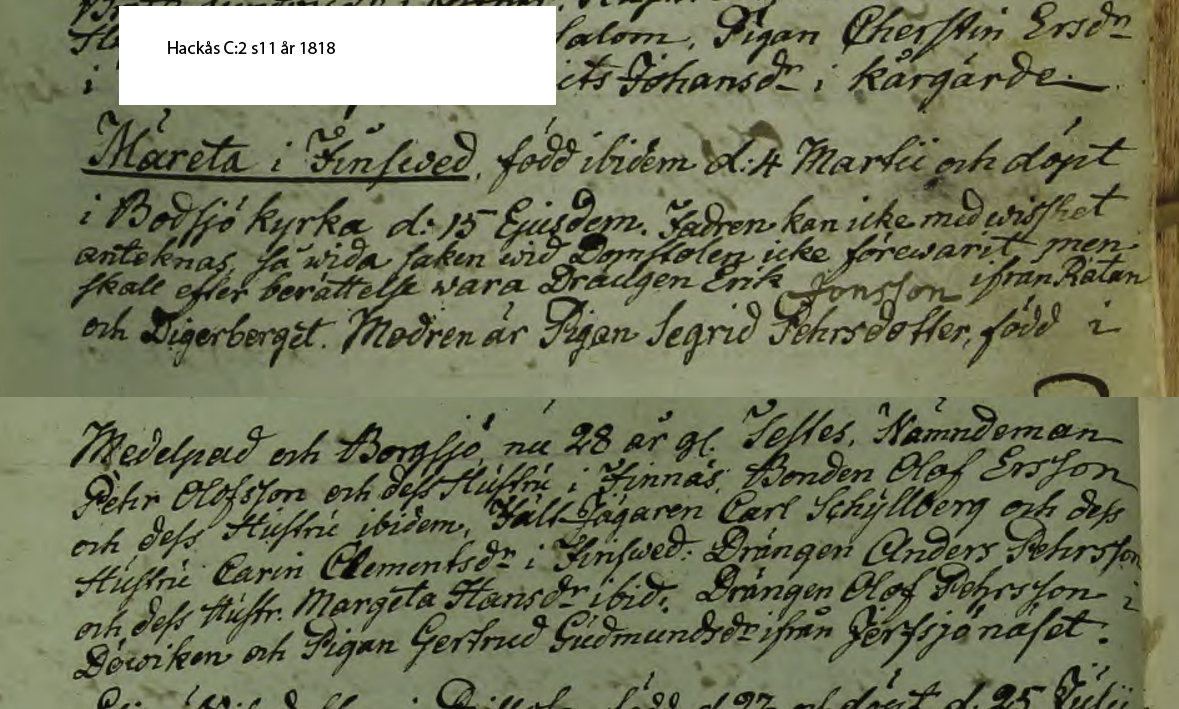 Hackås C:2 s11 år 1818
salom, Pigan Cherstin Ersdr
i its Johansdr i kårgärde.
Märeta i Finswed, född ibidem d: 4 Martii och döpt
i Bodsjö kyrka d: 15 Ejusdem. Fadren kan icke med wisshet
anteknas, så wida saken wid Domstolen icke förewarit, men
skall efter berättelse wara Drängen Erik Jonsson ifrån Rätan
och Digerberget. Modren är Pigan Segrid Pehrsdotter, född i
Medelpad och Borgsjö nu 28 år gl. Testes, Nämndeman
Pehr Olofsson och dess Hustru i Finnäs, Bonden Olof Ersson
och dess Hustru ibidem, Fält-Jägaren Carl Schyllberg och dess
Hustru Carin Clementsdr i Finswed: Drängen Anders Pehrsson
och dess Hustr. Margeta Hansdr ibid, Drängen Olof Pehrsson i
Döwiken och Pigan Gertrud Gudmundsdr ifrån Jerfsjönäset.
född d. 23 och döpt d. 25 Julii